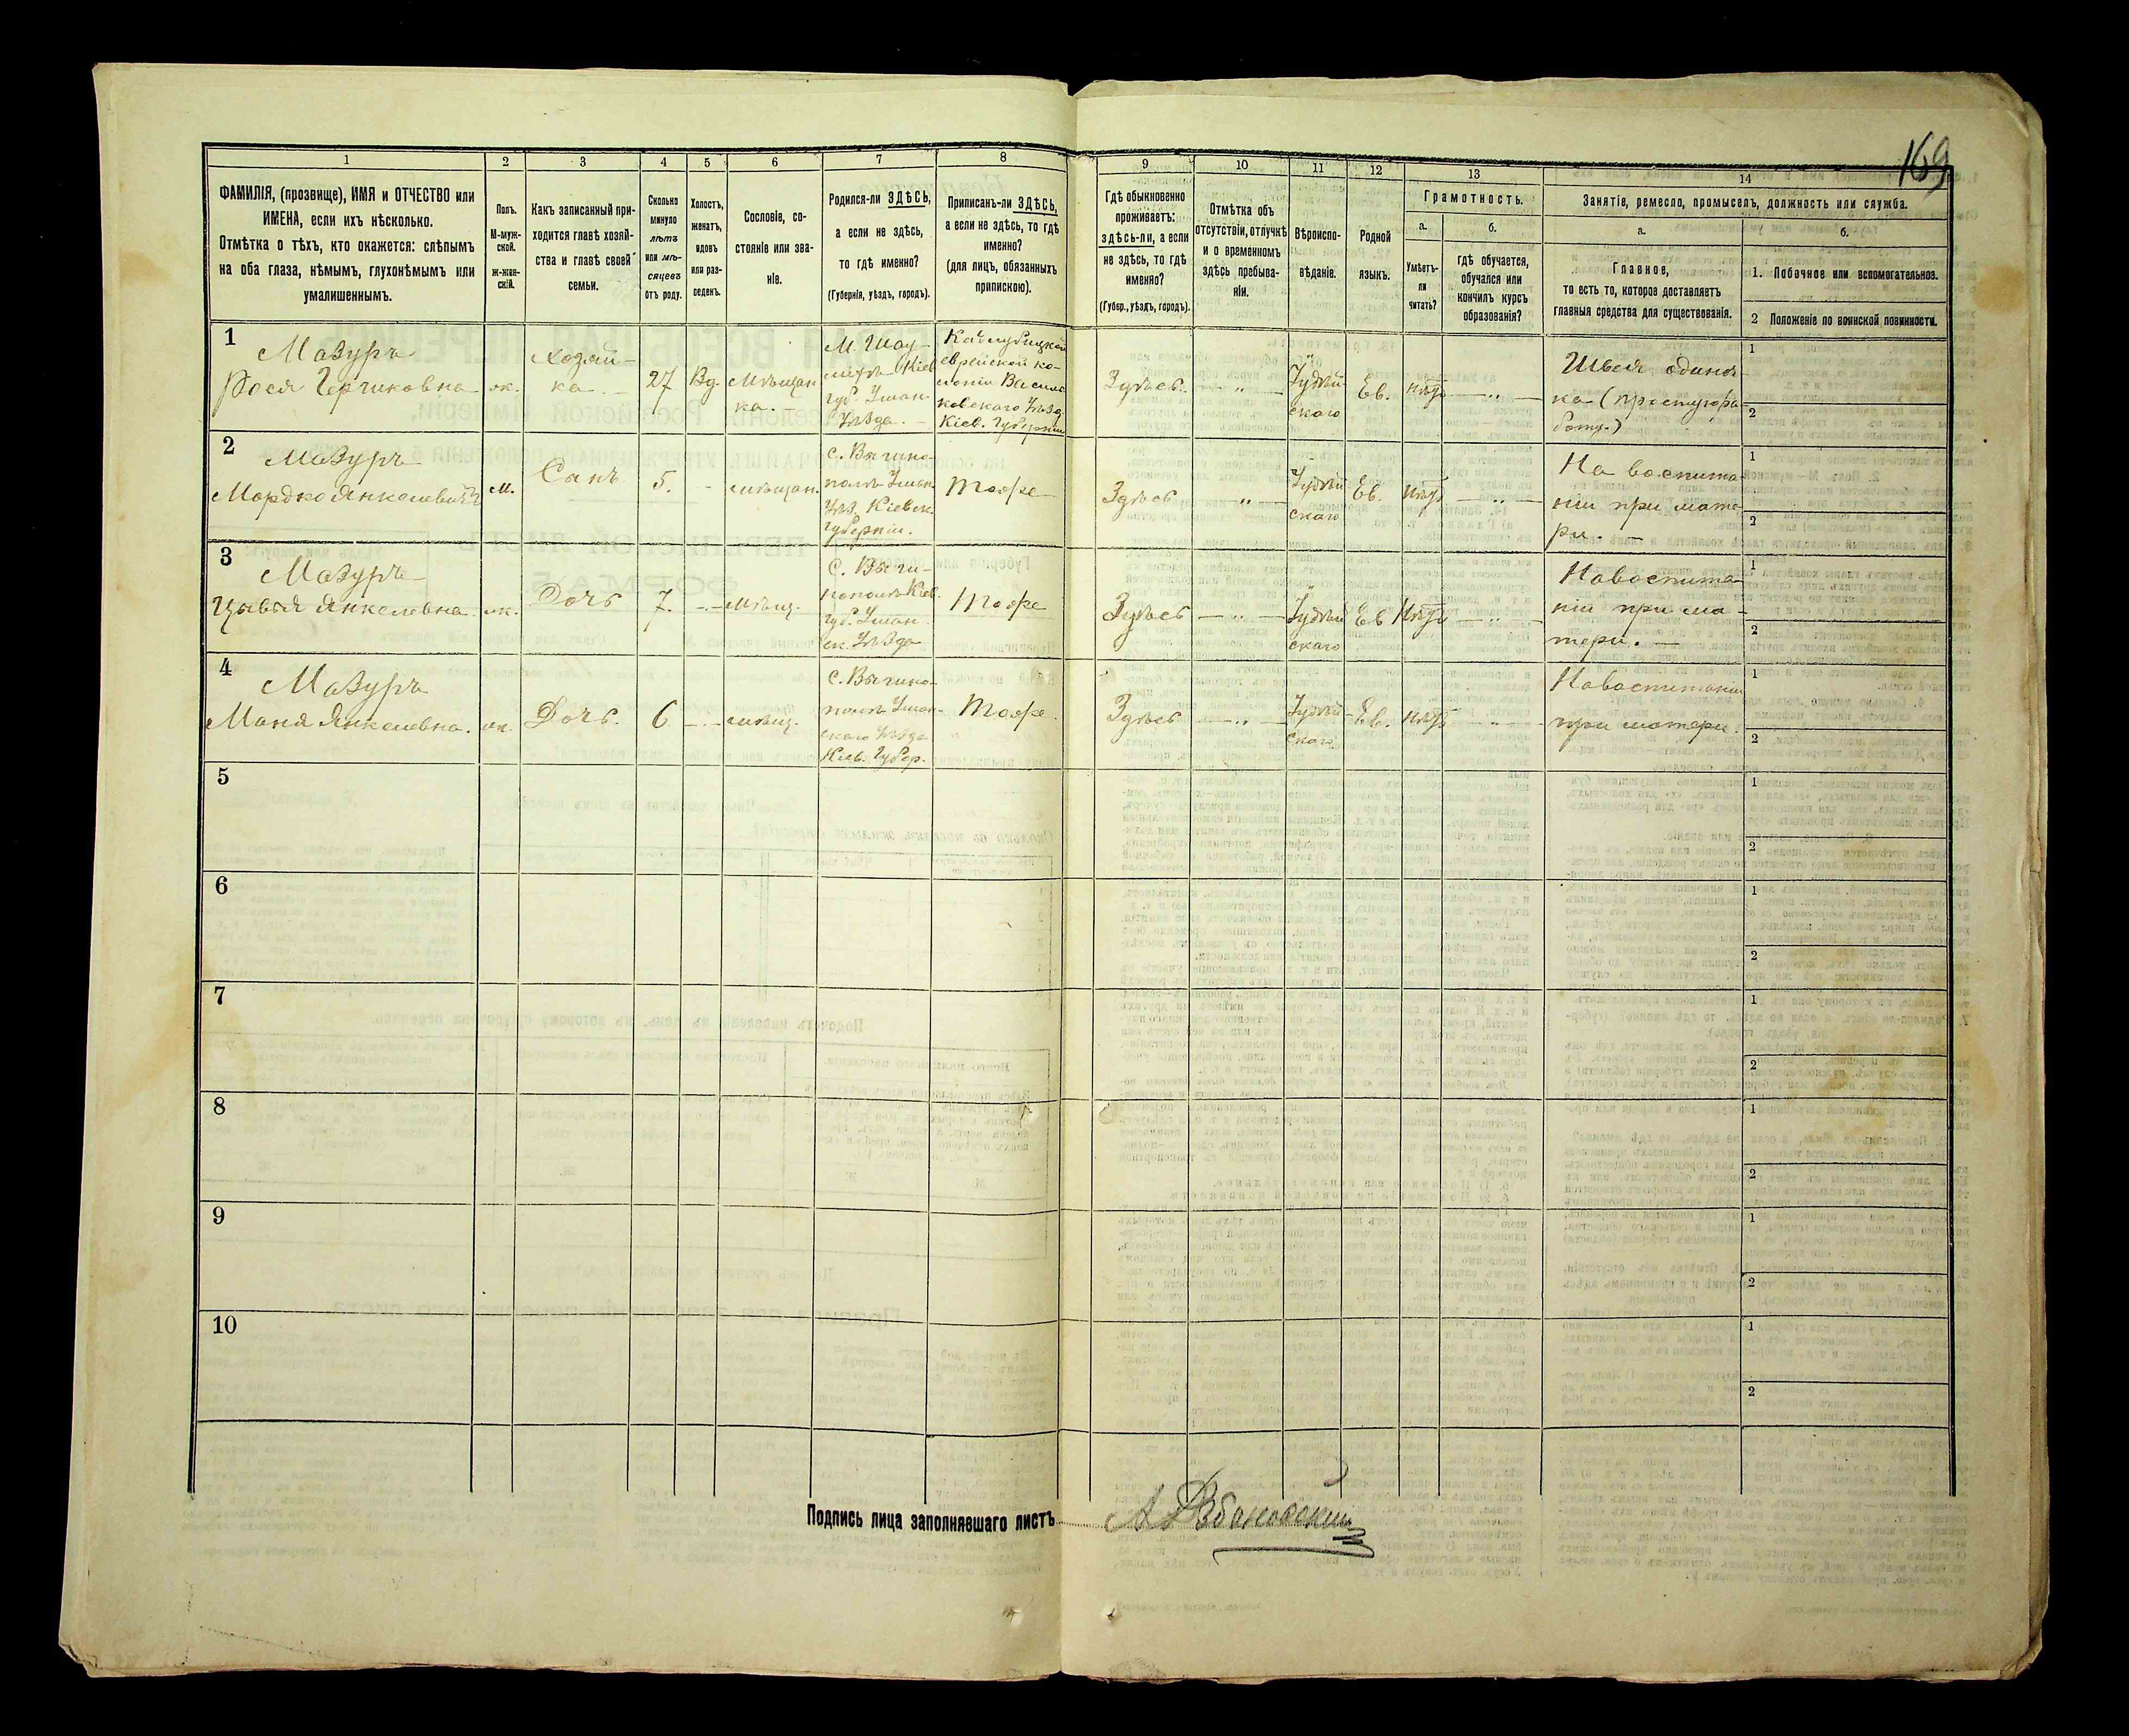 169
1
2
3
4
5
6
7
8
9
10
11
12
13
14
ФАМИЛІЯ, (прозвище), ИМЯ и ОТЧЕСТВО или
ИМЕНА, если ихъ нѣсколько.
Отмѣтка о тѣхъ, кто окажется: слѣпымъ
на оба глаза, нѣмымъ, глухонѣмымъ или
умалишеннымъ.
Полъ.
М-муж-
ской.
Ж-жен-
скій.
Какъ записанный при-
ходится главѣ хозяй-
ства и главѣ своей
семьи.
Сколько
минуло
лѣтъ
или мѣ-
сяцевъ
отъ роду.
Холостъ,
женатъ,
вдовъ
или раз-
веденъ.
Сословіе, со-
стояніе или зва-
ніе.
Родился-ли ЗДѢСЬ,
а если не здѣсь,
то гдѣ именно?
(Губернія, уѣздъ, городъ).
Приписанъ-ли ЗДѢСЬ,
а если не здѣсь, то гдѣ
именно?
(для лицъ, обязанныхъ
припискою).
Гдѣ обыкновенно
проживаетъ:
здѣсь-ли, а если
не здѣсь, то гдѣ
именно?
(Губер., уѣздъ, городъ).
Отмѣтка объ
отсутствіи, отлучкѣ
и о временномъ
здѣсь пребыва-
ніи.
Вѣроиспо-
вѣданіе.
Родной
языкъ.
Грамотность.
а.
Умѣетъ-
ли
читать?
б.
гдѣ обучается,
обучался или
кончилъ курсъ
образованія?
Занятіе, ремесло, промыселъ, должность или служба.
а.
Главное,
то есть то, которое доставляетъ
главныя средства для существованія.
б.
1. Побочное или вспомогательное.
2 Положеніе по воинской повинности.
1
Мазуръ
Рося Герчиковна
ж.
Хозяй-
ка
27
Вд.
Мѣщан
ка.
Кіев
губ. Уман
Уѣзда.
еврейской ко-
лоніи Василь
ковскаго Уѣзд.
Кіев. Губерніи
Здѣсь
"
Іудей
скаго
Ев.
нѣтъ
"
Швея
1
2
2
Мазуръ
Мордко Янкелевичъ
м.
Сынъ
5.
-
мѣщан.
Уман
Уѣз. Кіевск.
губерніи.
Тоже
Здѣсь
"
Іудей
скаго
Ев.
нѣтъ
"
На воспита
ніи при мате
ри. —
1
2
3
Мазуръ
Цывья Янкелевна
ж.
Дочь
7.
-
мѣщ.
Кіев.
губ. Уман.
ск. Уѣзда
Тоже
Здѣсь
"
Іудей
скаго
Ев
Нѣтъ
"
На воспита
ніи при ма-
тери. —
1
2
4
Мазуръ
Маня Янкелевна.
ж.
Дочь.
6
-
мѣщ.
Уман-
скаго Уѣзда
Кіев. Губер.
Тоже.
Здѣсь
"
Іудей-
скаго
Ев.
нѣтъ
"
На воспитаніи
при матери.
1
2
5
1
2
6
1
2
7
1
2
8
1
2
9
1
2
10
1
2
Подпись лица заполнявшаго листъ